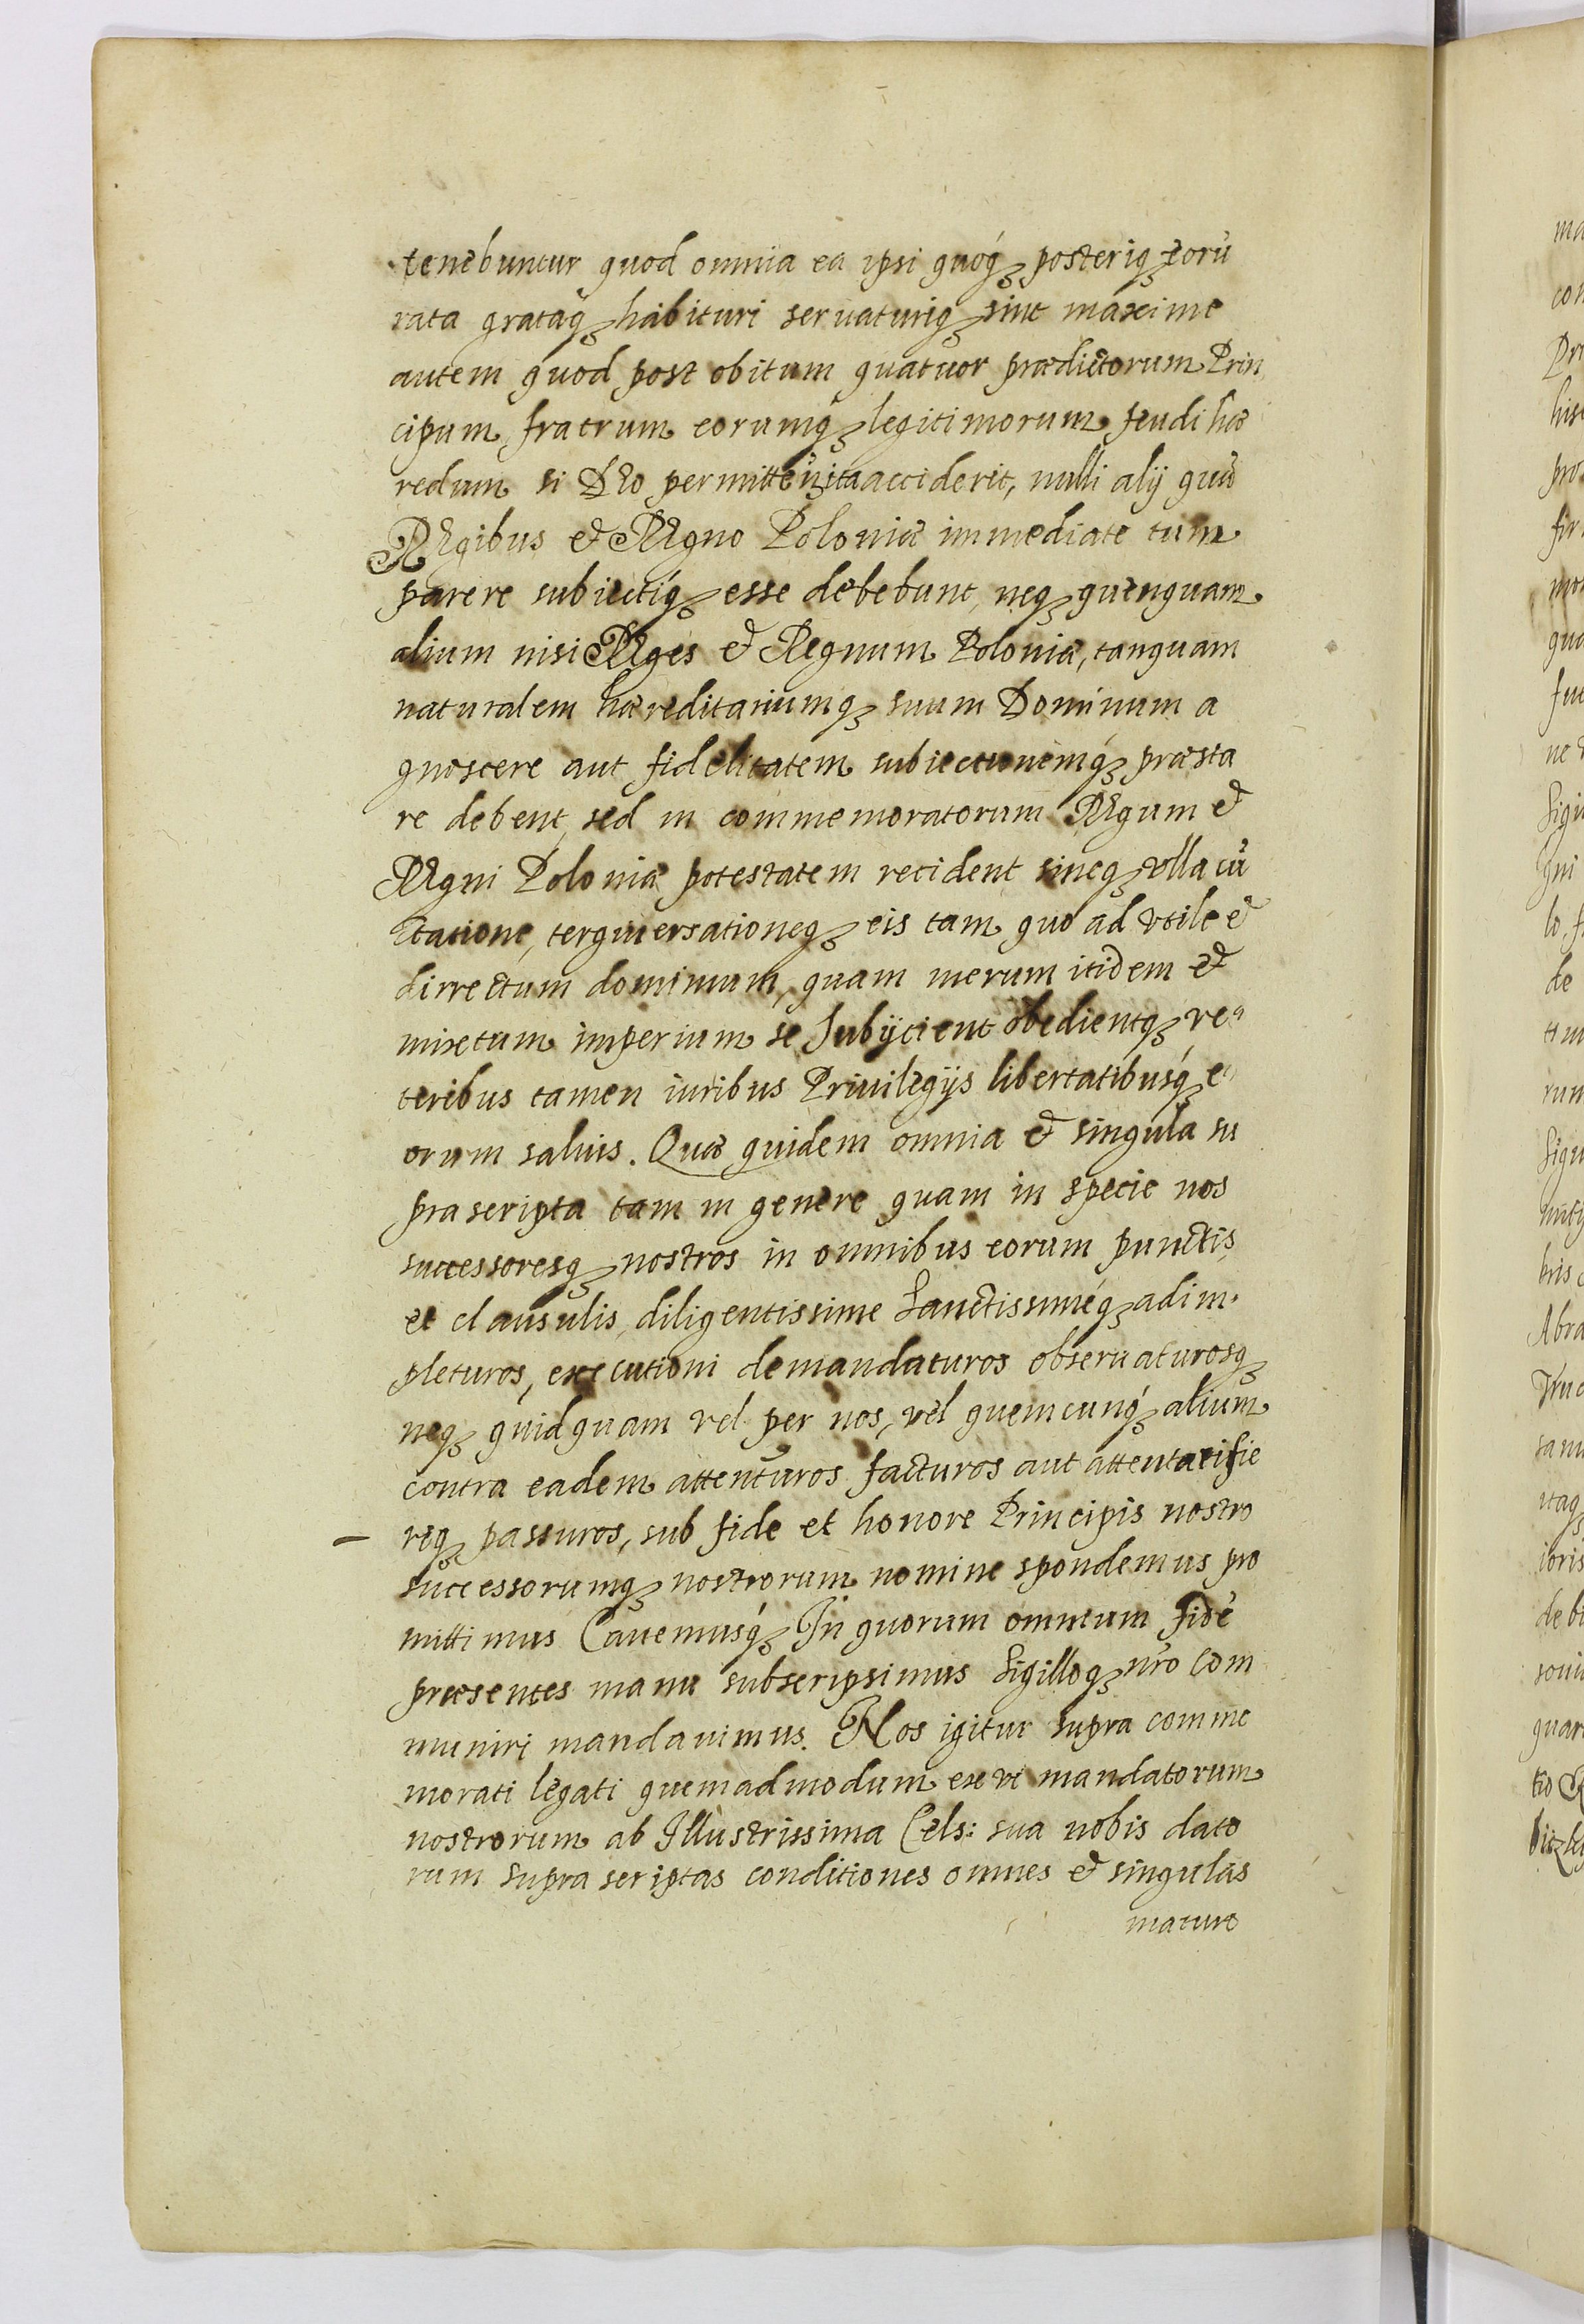 tenebuntur quod omnia ea ipsi quoq; posteriq; eorũ
rata grataq; habituri seruaturiq; sint maxime
autem quod post obitum quatuor prædictorum Prin
cipum fratrum eorumq; legitimorum feudi hæ
redum si Deo permittẽ: ita acciderit, nulli alij quã
Regibus & Regno Poloniæ immediate tum
parere subiectiq; esse debebunt, neq; quenquam
alium nisi Reges & Regnum Poloniæ, tanquam
naturalem hæreditariumq; suum Dominum a
gnoscere aut fidelitatem subiectionemq; præsta
re debent, sed in commemoratorum Regum &
Regni Poloniæ potestatem recident sineq; vlla cũ
ctatione, tergiuersationeq; eis tam quo ad vtile &
dirrectum dominium, quam merum itidem &
mixtum imperium se subijcient obedientq; ve
teribus tamen iuribus Priuilegijs libertatibusq; e
orum saluis. Quæ quidem omnia & singula su
prascripta tam in genere quam in specie nos
successoresq; nostros in omnibus eorum punctis
et clausulis, diligentissime Sanctissimeq; adim
pleturos, executioni demandaturos obseruaturosq;
neq; quidquam vel per nos, vel quemcunq; alium
contra eadem attenturos facturos aut attentari fie
riq; passuros, sub fide et honore Principis nostro
successorumq; nostrorum nomine spondemus pro
mittimus Cauemusq; In quorum omnium fidẽ
præsentes manu subscripsimus Sigilloq; nr̃o com
muniri mandauimus. Nos igitur supra comme
morati legati quemadmodum ex vi mandatorum
nostrorum ab Illustrissima Cels: sua nobis dato
rum supra scriptas conditiones omnes & singulas
mature